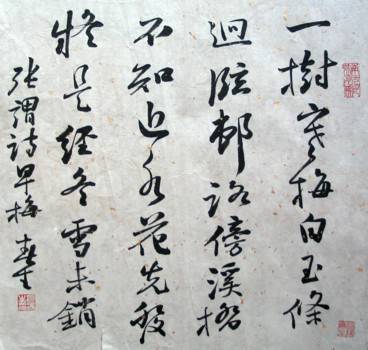 一樹寒梅白玉條
迥臨邨路傍溪橋
不知近水花先發
疑是經冬雪未銷
張謂詩早梅